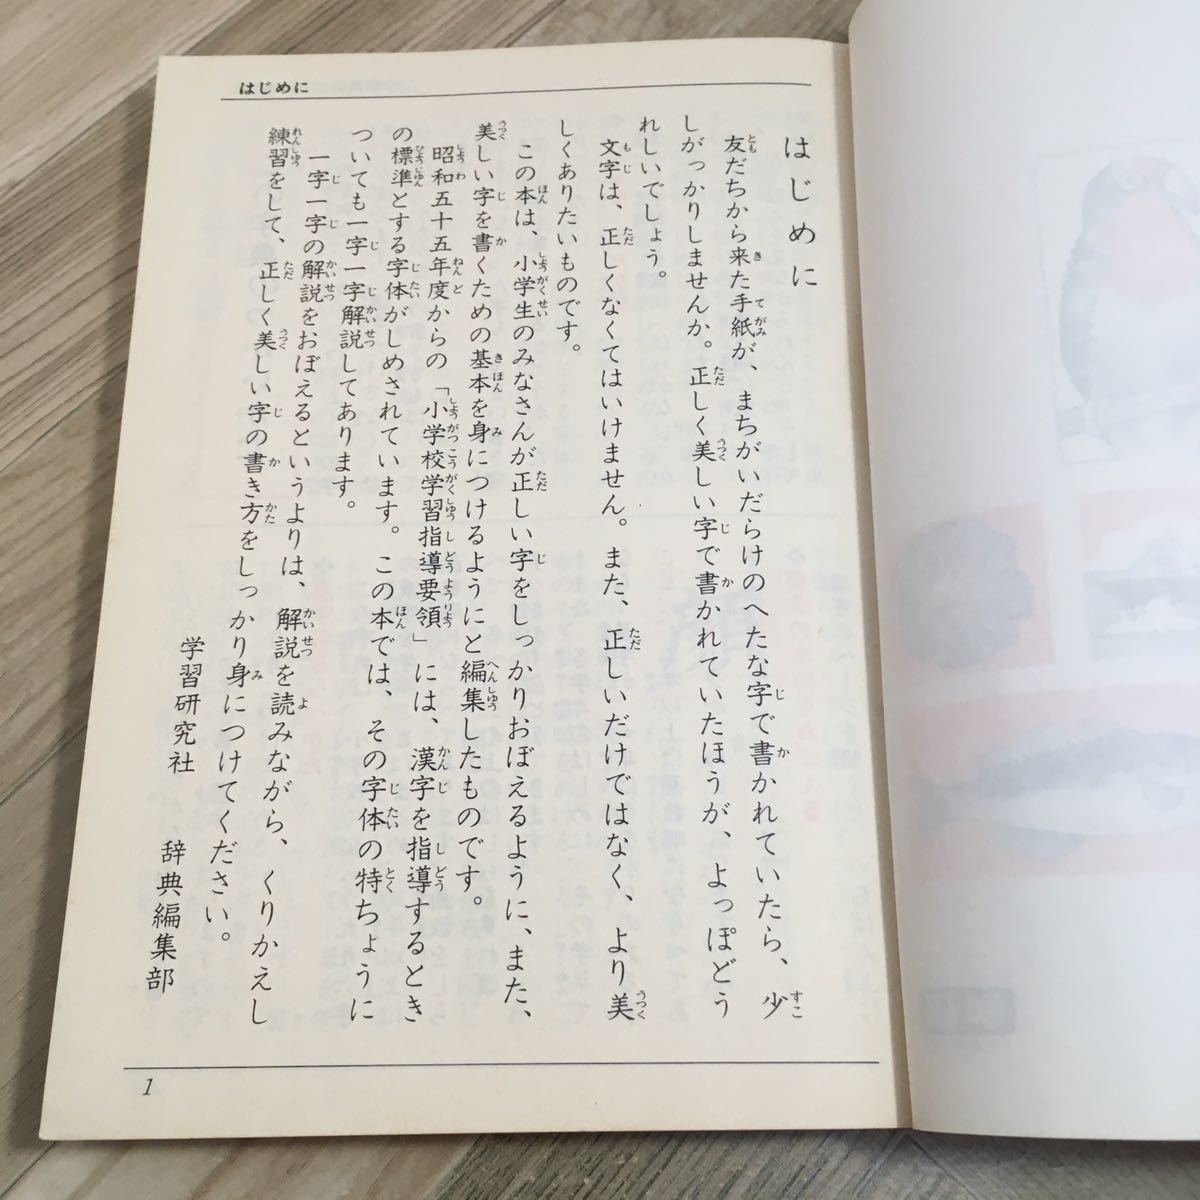 はじめに
はじめに
友だちから来た手紙が、まちがいだらけのへたな字で書かれていたら、少
しがっかりしませんか。正しく美しい字で書かれていたほうが、よっぽどう
れしいでしょう。
文字は、正しくなくてはいけません。また、正しいだけではなく、より美
しくありたいものです。
この本は、小学生のみなさんが正しい字をしっかりおぼえるように、また、
美しい字を書くための基本を身につけるようにと編集したものです。
昭和五十五年度からの「小学校学習指導要領」には、漢字を指導するとき
の標準とする字体がしめされています。この本では、その字体の特ちょうに
ついても一字一字解説してあります。
一字一字の解説をおぼえるというよりは、解説を読みながら、くりかえし
練習をして、正しく美しい字の書き方をしっかり身につけてください。
学習研究社　辞典編集部
1